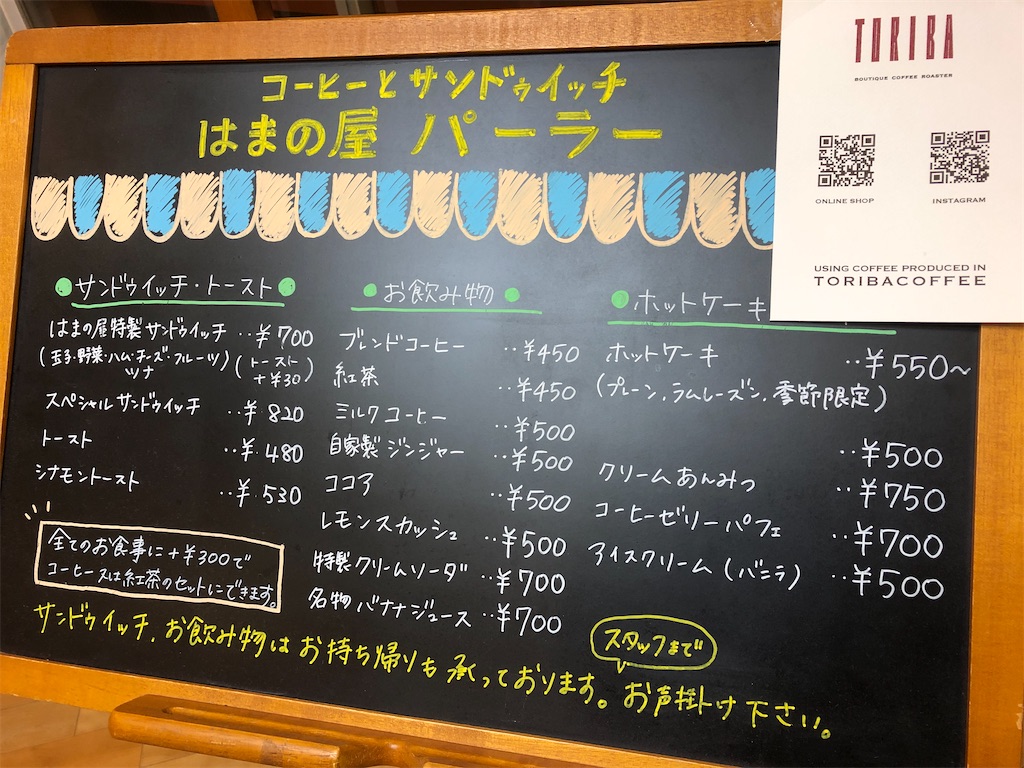 コーヒーとサンドゥイッチ
はまの屋 パーラー
サンドゥイッチ・トースト
はまの屋特製サンドゥイッチ ‥¥700
(玉子・野菜・ハム・チーズ・フルーツ)
ツナ
(トースト
+¥30)
スペシャルサンドゥイッチ ‥¥820
トースト ‥¥480
シナモントースト ‥¥530
全てのお食事に+¥300で
コーヒー又は紅茶のセットにできます。
お飲み物
ブレンドコーヒー ‥¥450
紅茶 ‥¥450
ミルクコーヒー ‥¥500
自家製ジンジャー ‥¥500
ココア ‥¥500
レモンスカッシュ ‥¥500
特製クリームソーダ ‥¥700
名物バナナジュース ‥¥700
ホットケーキ
ホットケーキ ‥¥550~
(プレーン,ラムレーズン,季節限定)
‥¥500
クリームあんみつ ‥¥750
コーヒーゼリーパフェ ‥¥700
アイスクリーム(バニラ) ‥¥500
サンドゥイッチ,お飲み物はお持ち帰りも承っております。お声掛け下さい。
スタッフまで
TORIBA
BOUTIQUE COFFEE ROASTER
ONLINE SHOP
INSTAGRAM
USING COFFEE PRODUCED IN
TORIBACOFFEE